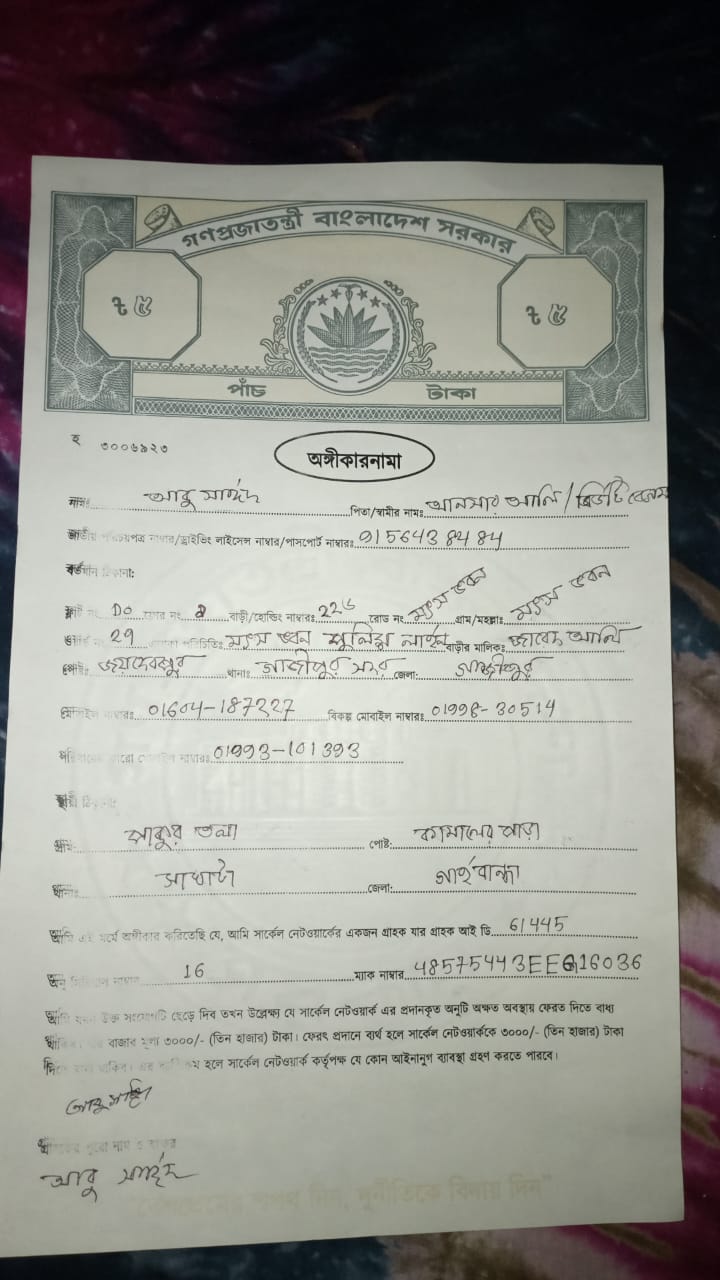 গণপ্রজাতন্ত্রী বাংলাদেশ সরকার
৳ ৫ ৳ ৫
পাঁচ টাকা
হ ৩০০৬৯২৩
অঙ্গীকারনামা
নামঃ আবু সাঈদ পিতা/স্বামীর নামঃ আনসার আলি /
জাতীয় পরিচয়পত্র নাম্বার/ড্রাইভিং লাইসেন্স নাম্বার/পাসপোর্ট নাম্বারঃ 9156438484
বর্তমান ঠিকানা:
ফ্লাট নং DO নং বাড়ী/হোল্ডিং নাম্বারঃ রোড নং গ্রাম/মহল্লাঃ
29 পরিচিতিঃ ভবন বাড়ীর মালিকঃ জাবেদ আলি
পোষ্টঃ জয়দেবপুর থানাঃ গাজীপুর সদর জেলা: গাজীপুর
মোবাইল নাম্বারঃ 01604-187227 বিকল্প মোবাইল নাম্বারঃ 01998-30514
পরিবারের কারো মোবাইল নাম্বারঃ 01993-101393
স্থায়ী ঠিকানা:
গ্রাম: পোষ্ট: কামালের পাড়া
থানাঃ সাঘাটা জেলা: গাইবান্ধা
আমি এই মর্মে অঙ্গীকার করিতেছি যে, আমি সার্কেল নেটওয়ার্কের একজন গ্রাহক যার গ্রাহক আই ডি 61445
অনু সিরিয়াল নাম্বার 16 ম্যাক নাম্বার 48575443EEG16036
আমি যখন উক্ত সংযোগটি ছেড়ে দিব তখন উল্লেক্ষ্য যে সার্কেল নেটওয়ার্ক এর প্রদানকৃত অনুটি অক্ষত অবস্থায় ফেরত দিতে বাধ্য
থাকিব। এর বাজার মূল্য ৩০০০/- (তিন হাজার) টাকা। ফেরৎ প্রদানে ব্যর্থ হলে সার্কেল নেটওয়ার্ককে ৩০০০/- (তিন হাজার) টাকা
দিতে বাধ্য থাকিব। এর ব্যতিক্রম হলে সার্কেল নেটওয়ার্ক কর্তৃপক্ষ যে কোন আইনানুগ ব্যবস্থা গ্রহণ করতে পারবে।
আবু সাঈদ
গ্রাহকের পুরো নাম ও স্বাক্ষর
আবু সাঈদ
দিন, দুর্নীতিকে বিদায় দিন"